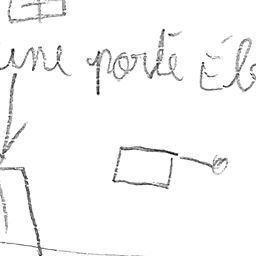 une porté Éb